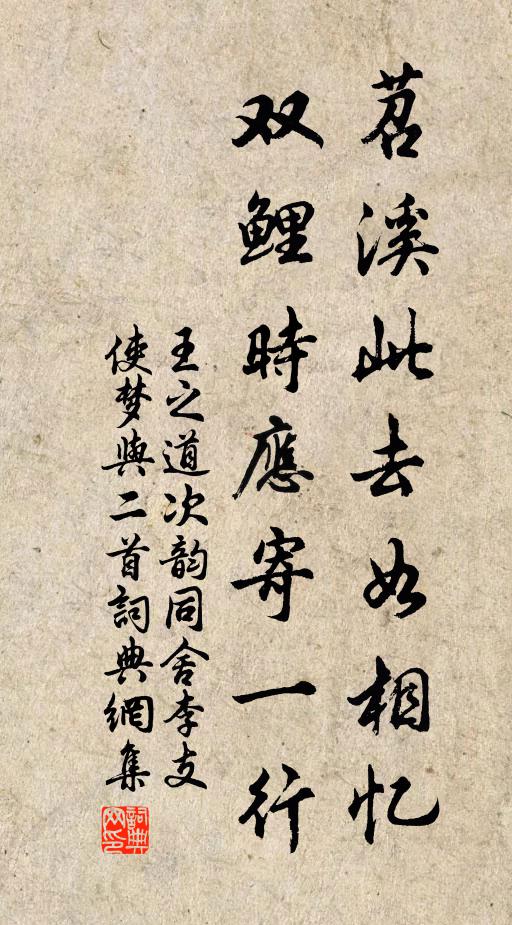 苕溪此去如相忆
双鲤時應寄一行
王之道次韵同舍李支
使梦與二首詞典網集
詞典网印